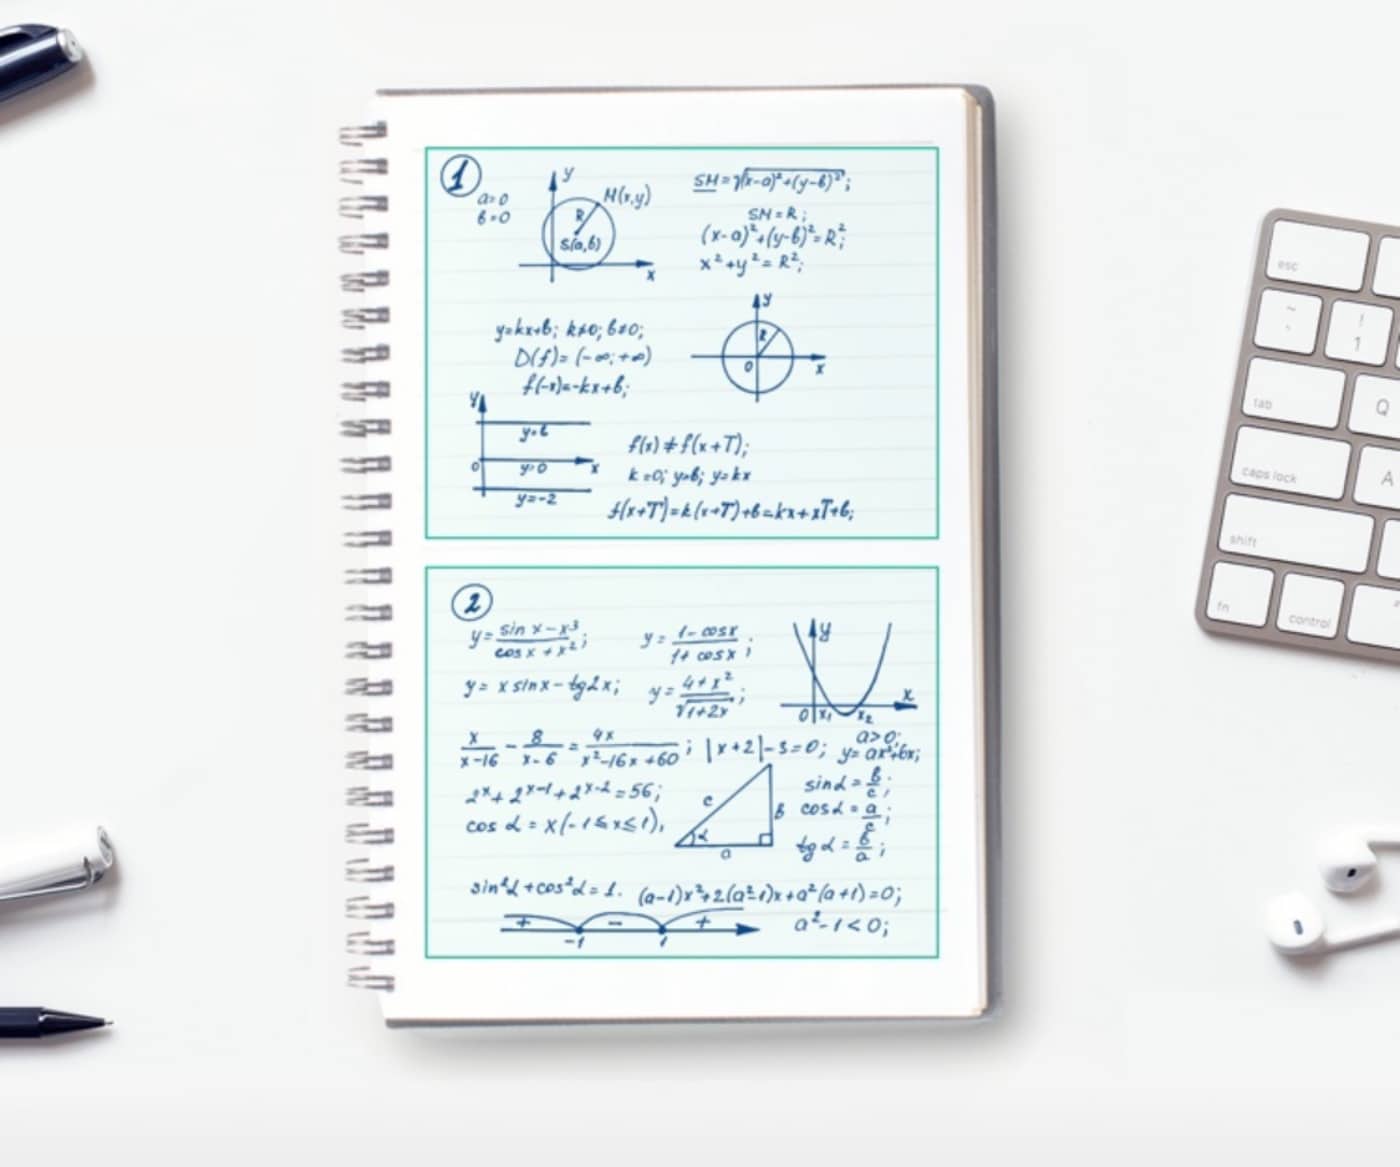 1
a=0
b=0
y
M(x,y)
R
S(a,b)
x
SM=√(x-a)²+(y-b)²;
SM=R;
(x-a)²+(y-b)²=R²;
x²+y²=R²;
y=kx+b; k≠0; b≠0;
D(f)=(-∞;+∞)
f(-x)=-kx+b;
y
R
0
x
y
y=b
0
y=0
x
y=-2
f(x)≠f(x+T);
k=0; y=b; y=kx
f(x+T)=k(x+T)+b=kx+xT+b;
2
y= sin x-x³ / cos x+x²;
y= 1-cosx / 1+cosx;
y= x sinx-tg2x;
y= 4+x² / √1+2x;
y
0
x₁
x₂
x
a>0;
y=ax²+bx;
x/x-16 - 8/x-6 = 4x/x²-16x+60;
|x+2|-3=0;
2ˣ+2ˣ⁻¹+2ˣ⁻²=56;
cos α=x(-1≤x≤1),
c
b
α
a
sinα= b/c;
cosα= a/c;
tgα= b/a;
sin²α+cos²α=1.
(a-1)x²+2(a²-1)x+a²(a+1)=0;
+ - +
-1 1
a²-1<0;
esc
~
!
1
tab
Q
caps lock
A
shift
fn
control